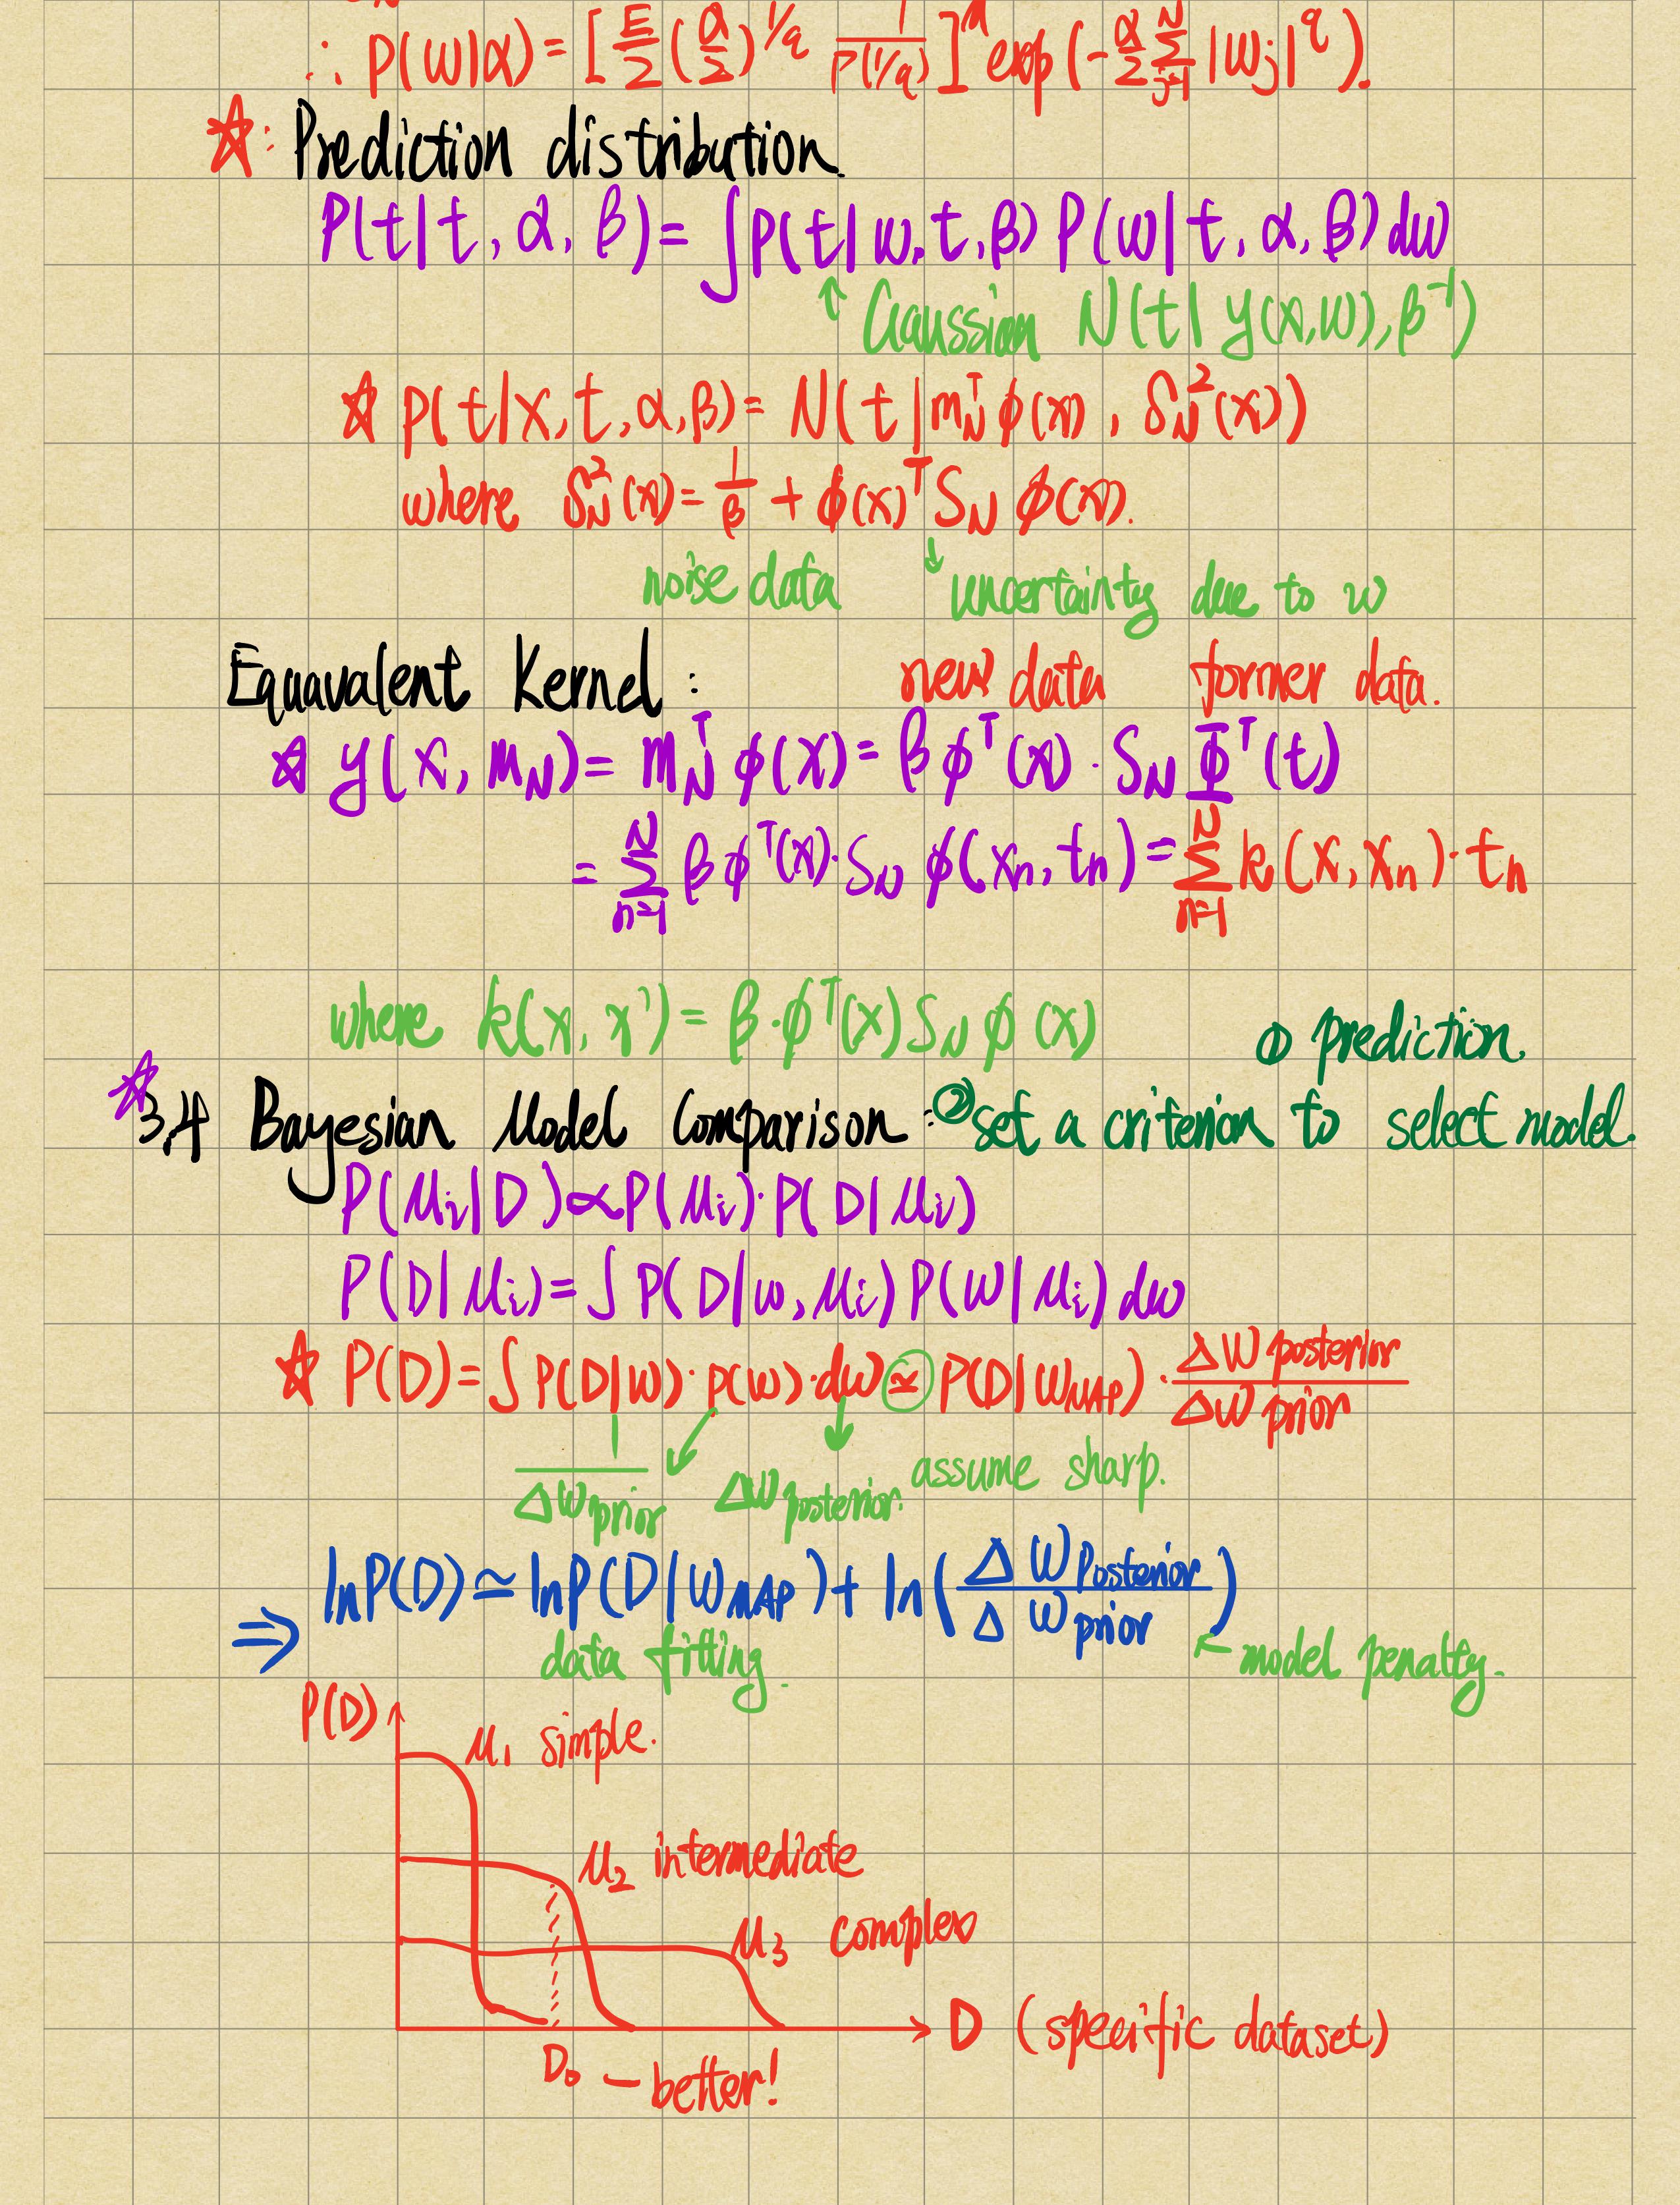 ∴ p(w|α) = [E/2 (α/2)^{1/q} 1/P(1/q)]^M exp(-α/2 Σ_{j=1}^N |wj|^q).
☆: Prediction distribution.
P(t|t, α, β) = ∫P(t|w, t, β) P(w|t, α, β) dw
↑ Gaussian N(t|y(x,w), β^{-1})
☆ p(t|x, t, α, β) = N(t|m_N^T φ(x), δ_N^2(x))
where δ_N^2(x) = 1/β + φ(x)^T S_N φ(x).
noise data ↓ uncertainty due to w
Equavalent Kernel: new data former data.
☆ y(x, m_N) = m_N^T φ(x) = β φ^T(x) · S_N Φ^T(t)
= Σ_{n=1}^N β φ^T(x) · S_N φ(x_n, t_n) = Σ_{n=1}^N k(x, x_n) · t_n
where k(x, x') = β · φ^T(x) S_N φ(x)
① prediction.
☆ 3.4 Bayesian Model Comparison: ② set a criterion to select model.
P(M_i|D) ∝ P(M_i) · P(D|M_i)
P(D|M_i) = ∫ P(D|w, M_i) P(w|M_i) dw
☆ P(D) = ∫ P(D|w) · p(w) · dw ≃ P(D|w_MAP) · Δw posterior / Δw prior
1/Δw prior ↙ ↓ Δw posterior. assume sharp.
⇒ ln P(D) ≃ ln P(D|w_MAP) + ln(Δ w Posterior / Δ w prior)
data fitting. ← model penalty.
P(D)
M_1 simple.
M_2 intermediate
M_3 complex
D (specific dataset)
D_0 — better!